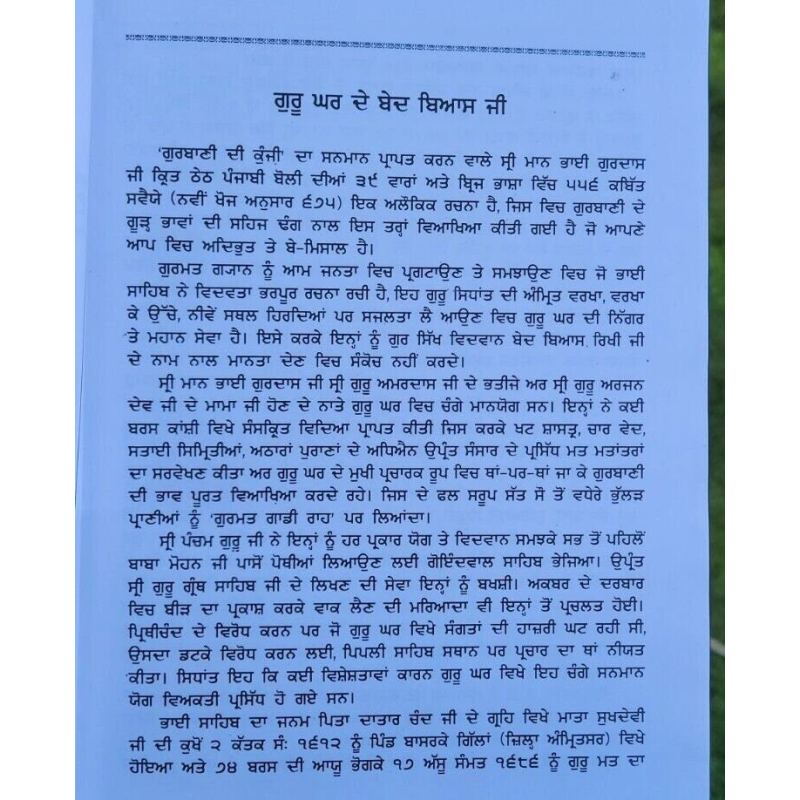 ਗੁਰੂ ਘਰ ਦੇ ਬੇਦ ਬਿਆਸ ਜੀ
'ਗੁਰਬਾਣੀ ਦੀ ਕੁੰਜੀ' ਦਾ ਸਨਮਾਨ ਪ੍ਰਾਪਤ ਕਰਨ ਵਾਲੇ ਸ੍ਰੀ ਮਾਨ ਭਾਈ ਗੁਰਦਾਸ
ਜੀ ਕ੍ਰਿਤ ਠੇਠ ਪੰਜਾਬੀ ਬੋਲੀ ਦੀਆਂ ੩੯ ਵਾਰਾਂ ਅਤੇ ਬ੍ਰਿਜ ਭਾਸ਼ਾ ਵਿੱਚ ੫੫੬ ਕਬਿੱਤ
ਸਵੈਯੇ (ਨਵੀਂ ਖੋਜ ਅਨੁਸਾਰ ੬੭੫) ਇਕ ਅਲੌਕਿਕ ਰਚਨਾ ਹੈ, ਜਿਸ ਵਿਚ ਗੁਰਬਾਣੀ ਦੇ
ਗੁੜ੍ਹ ਭਾਵਾਂ ਦੀ ਸਹਿਜ ਢੰਗ ਨਾਲ ਇਸ ਤਰ੍ਹਾਂ ਵਿਆਖਿਆ ਕੀਤੀ ਗਈ ਹੈ ਜੋ ਆਪਣੇ
ਆਪ ਵਿਚ ਅਦਿਭੁਤ ਤੇ ਬੇ-ਮਿਸਾਲ ਹੈ।
ਗੁਰਮਤ ਗਯਾਨ ਨੂੰ ਆਮ ਜਨਤਾ ਵਿਚ ਪ੍ਰਗਟਾਉਣ ਤੇ ਸਮਝਾਉਣ ਵਿਚ ਜੋ ਭਾਈ
ਸਾਹਿਬ ਨੇ ਵਿਦਵਤਾ ਭਰਪੂਰ ਰਚਨਾ ਰਚੀ ਹੈ, ਇਹ ਗੁਰੂ ਸਿਧਾਂਤ ਦੀ ਅੰਮ੍ਰਿਤ ਵਰਖਾ, ਵਰਖਾ
ਕੇ ਉੱਚੇ, ਨੀਵੇਂ ਸਥਲ ਹਿਰਦਿਆਂ ਪਰ ਸਜਲਤਾ ਲੈ ਆਉਣ ਵਿਚ ਗੁਰੂ ਘਰ ਦੀ ਨਿੱਗਰ
ਤੇ ਮਹਾਨ ਸੇਵਾ ਹੈ। ਇਸੇ ਕਰਕੇ ਇਨ੍ਹਾਂ ਨੂੰ ਗੁਰ ਸਿੱਖ ਵਿਦਵਾਨ ਬੇਦ ਬਿਆਸ ਰਿਖੀ ਜੀ
ਦੇ ਨਾਮ ਨਾਲ ਮਾਨਤਾ ਦੇਣ ਵਿਚ ਸੰਕੋਚ ਨਹੀਂ ਕਰਦੇ।
ਸ੍ਰੀ ਮਾਨ ਭਾਈ ਗੁਰਦਾਸ ਜੀ ਸ੍ਰੀ ਗੁਰੂ ਅਮਰਦਾਸ ਜੀ ਦੇ ਭਤੀਜੇ ਅਰ ਸ੍ਰੀ ਗੁਰੂ ਅਰਜਨ
ਦੇਵ ਜੀ ਦੇ ਮਾਮਾ ਜੀ ਹੋਣ ਦੇ ਨਾਤੇ ਗੁਰੂ ਘਰ ਵਿਚ ਚੰਗੇ ਮਾਨਯੋਗ ਸਨ। ਇਨ੍ਹਾਂ ਨੇ ਕਈ
ਬਰਸ ਕਾਂਸ਼ੀ ਵਿਖੇ ਸੰਸਕ੍ਰਿਤ ਵਿਦਿਆ ਪ੍ਰਾਪਤ ਕੀਤੀ ਜਿਸ ਕਰਕੇ ਖਟ ਸ਼ਾਸਤ੍ਰ, ਚਾਰ ਵੇਦ,
ਸਤਾਈ ਸਿਮ੍ਰਿਤੀਆਂ, ਅਠਾਰਾਂ ਪੁਰਾਣਾਂ ਦੇ ਅਧਿਐਨ ਉਪ੍ਰੰਤ ਸੰਸਾਰ ਦੇ ਪ੍ਰਸਿੱਧ ਮਤ ਮਤਾਂਤਰਾਂ
ਦਾ ਸਰਵੇਖਣ ਕੀਤਾ ਅਰ ਗੁਰੂ ਘਰ ਦੇ ਮੁਖੀ ਪ੍ਰਚਾਰਕ ਰੂਪ ਵਿਚ ਥਾਂ-ਪਰ-ਥਾਂ ਜਾ ਕੇ ਗੁਰਬਾਣੀ
ਦੀ ਭਾਵ ਪੂਰਤ ਵਿਆਖਿਆ ਕਰਦੇ ਰਹੇ। ਜਿਸ ਦੇ ਫਲ ਸਰੂਪ ਸੱਤ ਸੋ ਤੋਂ ਵਧੇਰੇ ਭੁੱਲੜ
ਪ੍ਰਾਣੀਆਂ ਨੂੰ 'ਗੁਰਮਤ ਗਾਡੀ ਰਾਹ' ਪਰ ਲਿਆਂਦਾ।
ਸ੍ਰੀ ਪੰਚਮ ਗੁਰੂ ਜੀ ਨੇ ਇਨ੍ਹਾਂ ਨੂੰ ਹਰ ਪ੍ਰਕਾਰ ਯੋਗ ਤੇ ਵਿਦਵਾਨ ਸਮਝਕੇ ਸਭ ਤੋਂ ਪਹਿਲੋਂ
ਬਾਬਾ ਮੋਹਨ ਜੀ ਪਾਸੋਂ ਪੋਥੀਆਂ ਲਿਆਉਣ ਲਈ ਗੋਇੰਦਵਾਲ ਸਾਹਿਬ ਭੇਜਿਆ। ਉਪ੍ਰੰਤ
ਸ੍ਰੀ ਗੁਰੂ ਗ੍ਰੰਥ ਸਾਹਿਬ ਜੀ ਦੇ ਲਿਖਣ ਦੀ ਸੇਵਾ ਇਨ੍ਹਾਂ ਨੂੰ ਬਖਸ਼ੀ। ਅਕਬਰ ਦੇ ਦਰਬਾਰ
ਵਿਚ ਬੀੜ ਦਾ ਪ੍ਰਕਾਸ਼ ਕਰਕੇ ਵਾਕ ਲੈਣ ਦੀ ਮਰਿਆਦਾ ਵੀ ਇਨ੍ਹਾਂ ਤੋਂ ਪ੍ਰਚਲਤ ਹੋਈ।
ਪ੍ਰਿਥੀਚੰਦ ਦੇ ਵਿਰੋਧ ਕਰਨ ਪਰ ਜੋ ਗੁਰੂ ਘਰ ਵਿਖੇ ਸੰਗਤਾਂ ਦੀ ਹਾਜ਼ਰੀ ਘਟ ਰਹੀ ਸੀ,
ਉਸਦਾ ਡਟਕੇ ਵਿਰੋਧ ਕਰਨ ਲਈ, ਪਿਪਲੀ ਸਾਹਿਬ ਸਥਾਨ ਪਰ ਪ੍ਰਚਾਰ ਦਾ ਥਾਂ ਨੀਯਤ
ਕੀਤਾ। ਸਿਧਾਂਤ ਇਹ ਕਿ ਕਈ ਵਿਸ਼ੇਸ਼ਤਾਵਾਂ ਕਾਰਨ ਗੁਰੂ ਘਰ ਵਿਖੇ ਇਹ ਚੰਗੇ ਸਨਮਾਨ
ਯੋਗ ਵਿਅਕਤੀ ਪ੍ਰਸਿੱਧ ਹੋ ਗਏ ਸਨ।
ਭਾਈ ਸਾਹਿਬ ਦਾ ਜਨਮ ਪਿਤਾ ਦਾਤਾਰ ਚੰਦ ਜੀ ਦੇ ਗ੍ਰਹਿ ਵਿਖੇ ਮਾਤਾ ਸੁਖਦੇਵੀ
ਜੀ ਦੀ ਕੁਖੋਂ ੨ ਕੱਤਕ ਸੰ: ੧੬੧੨ ਨੂੰ ਪਿੰਡ ਬਾਸਰਕੇ ਗਿੱਲਾਂ (ਜ਼ਿਲ੍ਹਾ ਅੰਮ੍ਰਿਤਸਰ) ਵਿਖੇ
ਹੋਇਆ ਅਤੇ ੭੪ ਬਰਸ ਦੀ ਆਯੂ ਭੋਗਕੇ ੧੭ ਅੱਸੂ ਸੰਮਤ ੧੬੮੬ ਨੂੰ ਗੁਰੂ ਮਤ ਦਾ